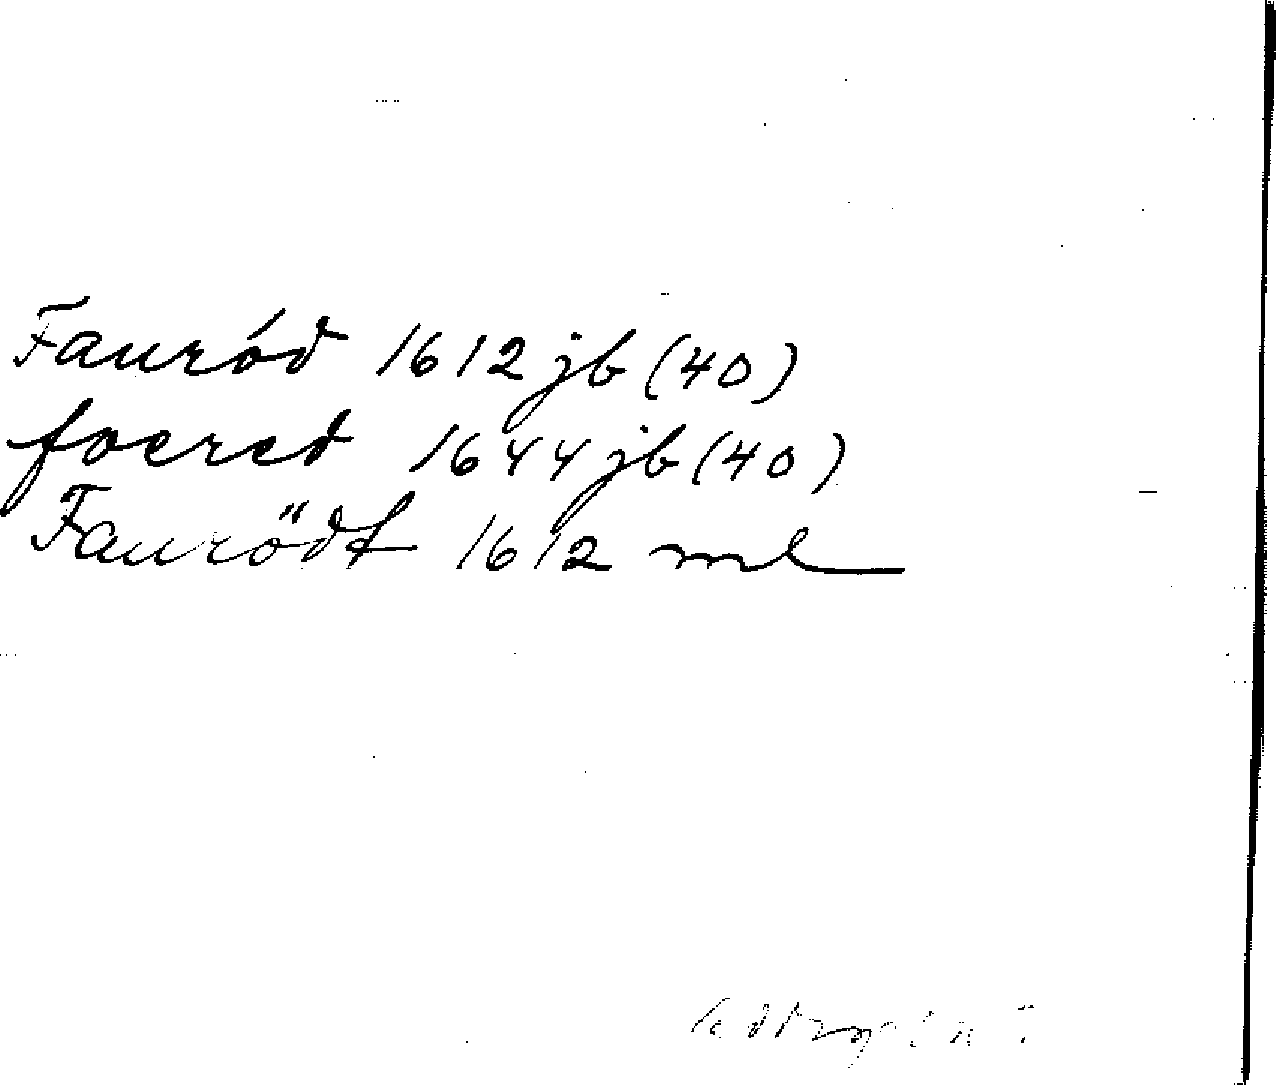 Fauród 1612 jb (40)
foered 1644 jb (40)
Faurödt 1612 ml